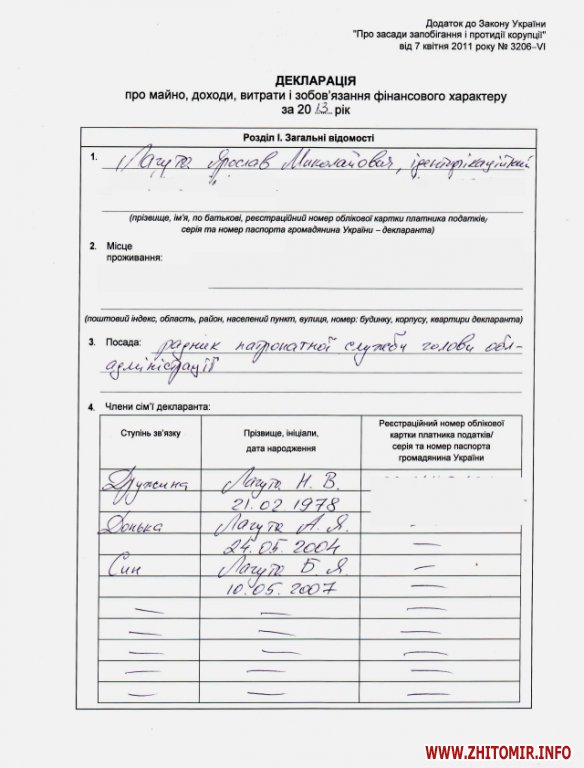 Додаток до Закону України
"Про засади запобігання і протидії корупції"
від 7 квітня 2011 року № 3206–VI
ДЕКЛАРАЦІЯ
про майно, доходи, витрати і зобов'язання фінансового характеру
за 2013 рік
Розділ I. Загальні відомості
1. Лагута Ярослав Миколайович, ідентифікаційний
(прізвище, ім'я, по батькові, реєстраційний номер облікової картки платника податків/
серія та номер паспорта громадянина України – декларанта)
2. Місце
проживання:
(поштовий індекс, область, район, населений пункт, вулиця, номер: будинку, корпусу, квартири декларанта)
3. Посада: радник патронатної служби голови обл-
адміністрації
4. Члени сім'ї декларанта:
Ступінь зв'язку Прізвище, ініціали, дата народження Реєстраційний номер облікової картки платника податків/ серія та номер паспорта громадянина України
Дружина Лагута Н. В.
21.02 1978
Донька Лагута А. Я. —
24.05.2004 —
Син Лагута Б Я. —
10.05.2007 —
— — —
— — —
— — —
— — —
— — —
WWW.ZHITOMIR.INFO